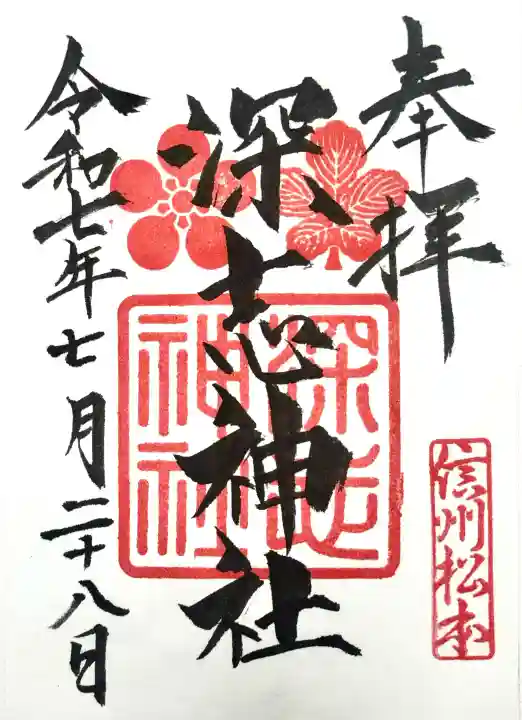 奉拝
信州松本
深志神社
深志神社
令和七年七月二十八日